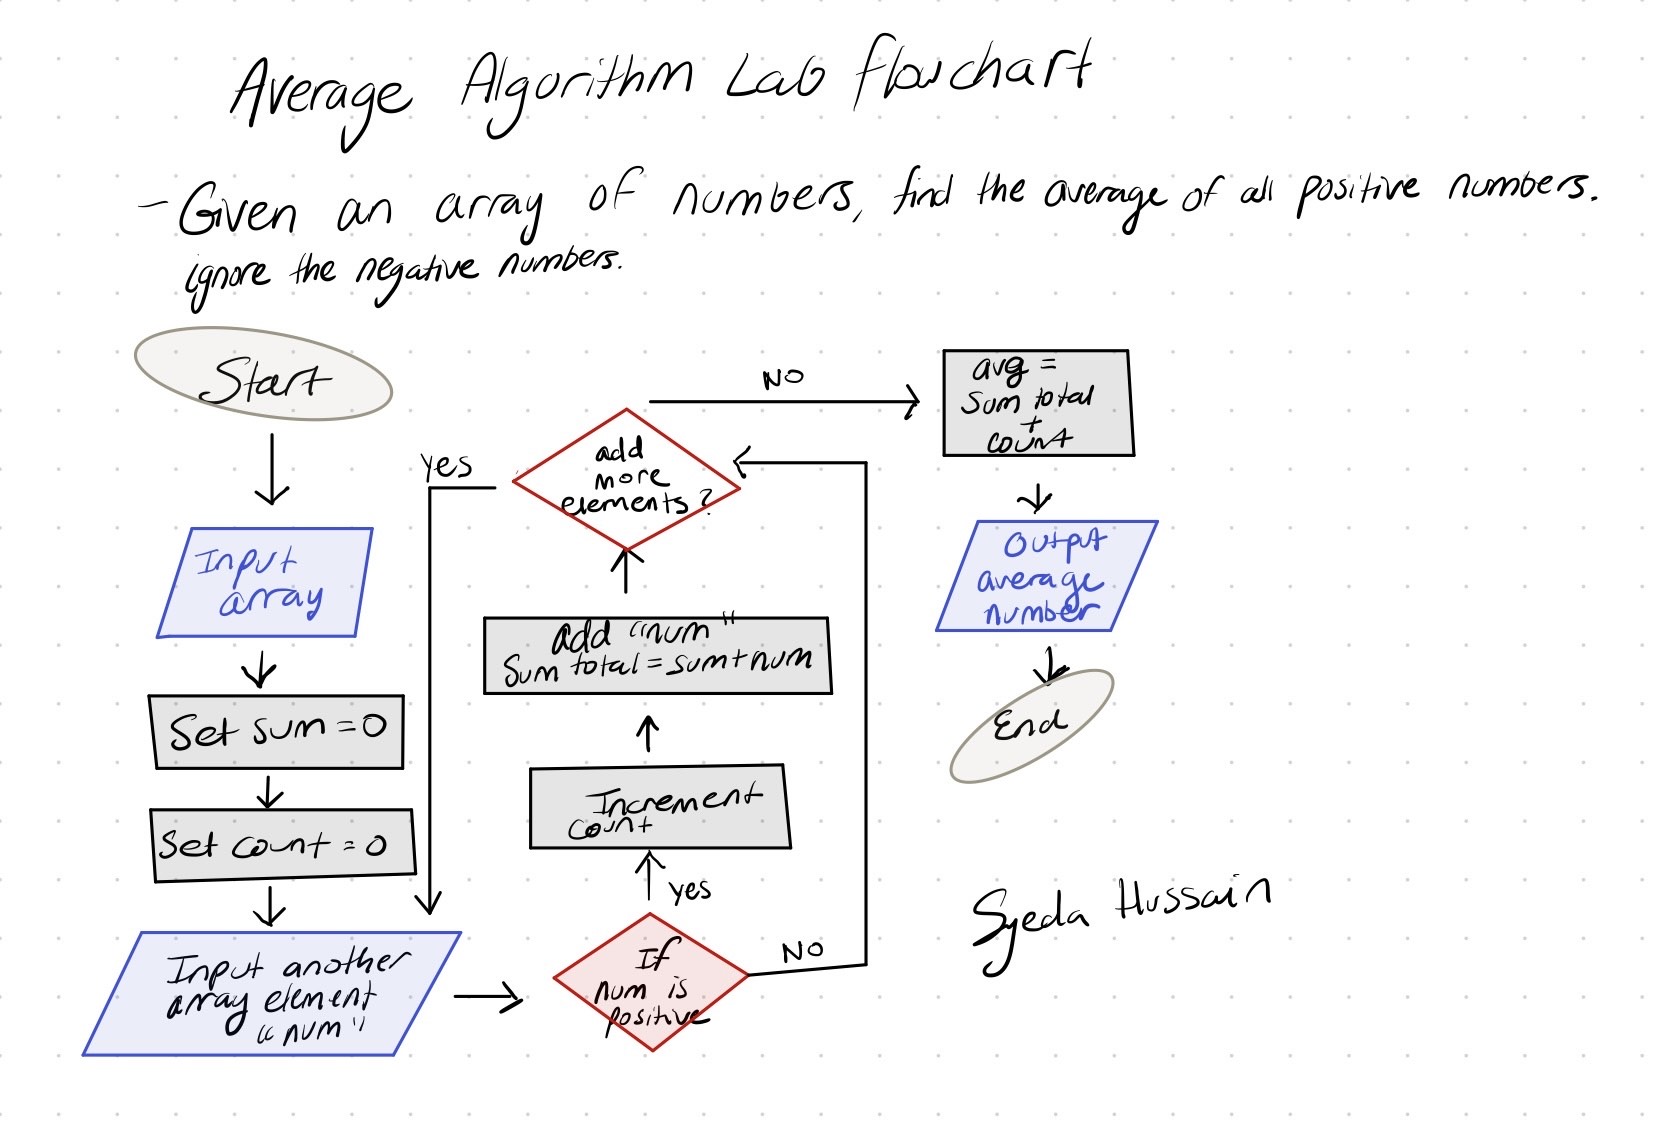 Average Algorithm Lab flowchart
- Given an array of numbers, find the average of all positive numbers.
ignore the negative numbers.
Start
Input
array
Set sum = 0
Set count = 0
Input another
array element
"num"
If
num is
positive
yes
NO
Increment
count
add "num"
Sum total = sum + num
add
more
elements?
yes
NO
avg =
sum total
+
count
Output
average
number
End
Syeda Hussain